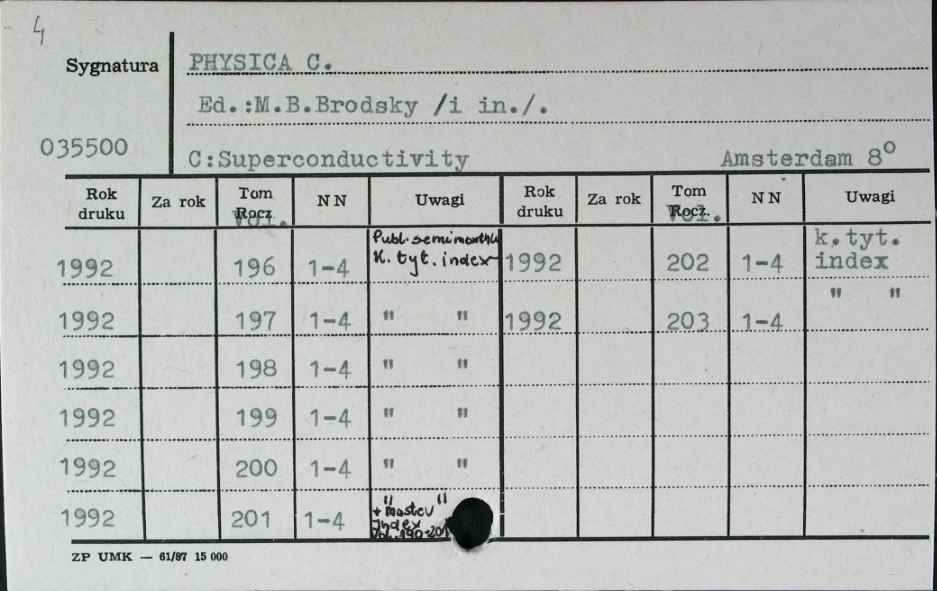 4
Sygnatura PHYSICA C.
Ed.:M.B.Brodsky /i in./.
035500
C:Superconductivity Amsterdam 8°
Rok druku Za rok Tom Rocz. Vol. NN Uwagi Rok druku Za rok Tom Rocz. Vol. NN Uwagi
1992 196 1-4 Publ. semimonthly K. tyt. index 1992 202 1-4 k.tyt. index
1992 197 1-4 " " 1992 203 1-4 " "
1992 198 1-4 " "
1992 199 1-4 " "
1992 200 1-4 " "
1992 201 1-4 " " + master Index Vol. 190-201
ZP UMK — 61/87 15 000